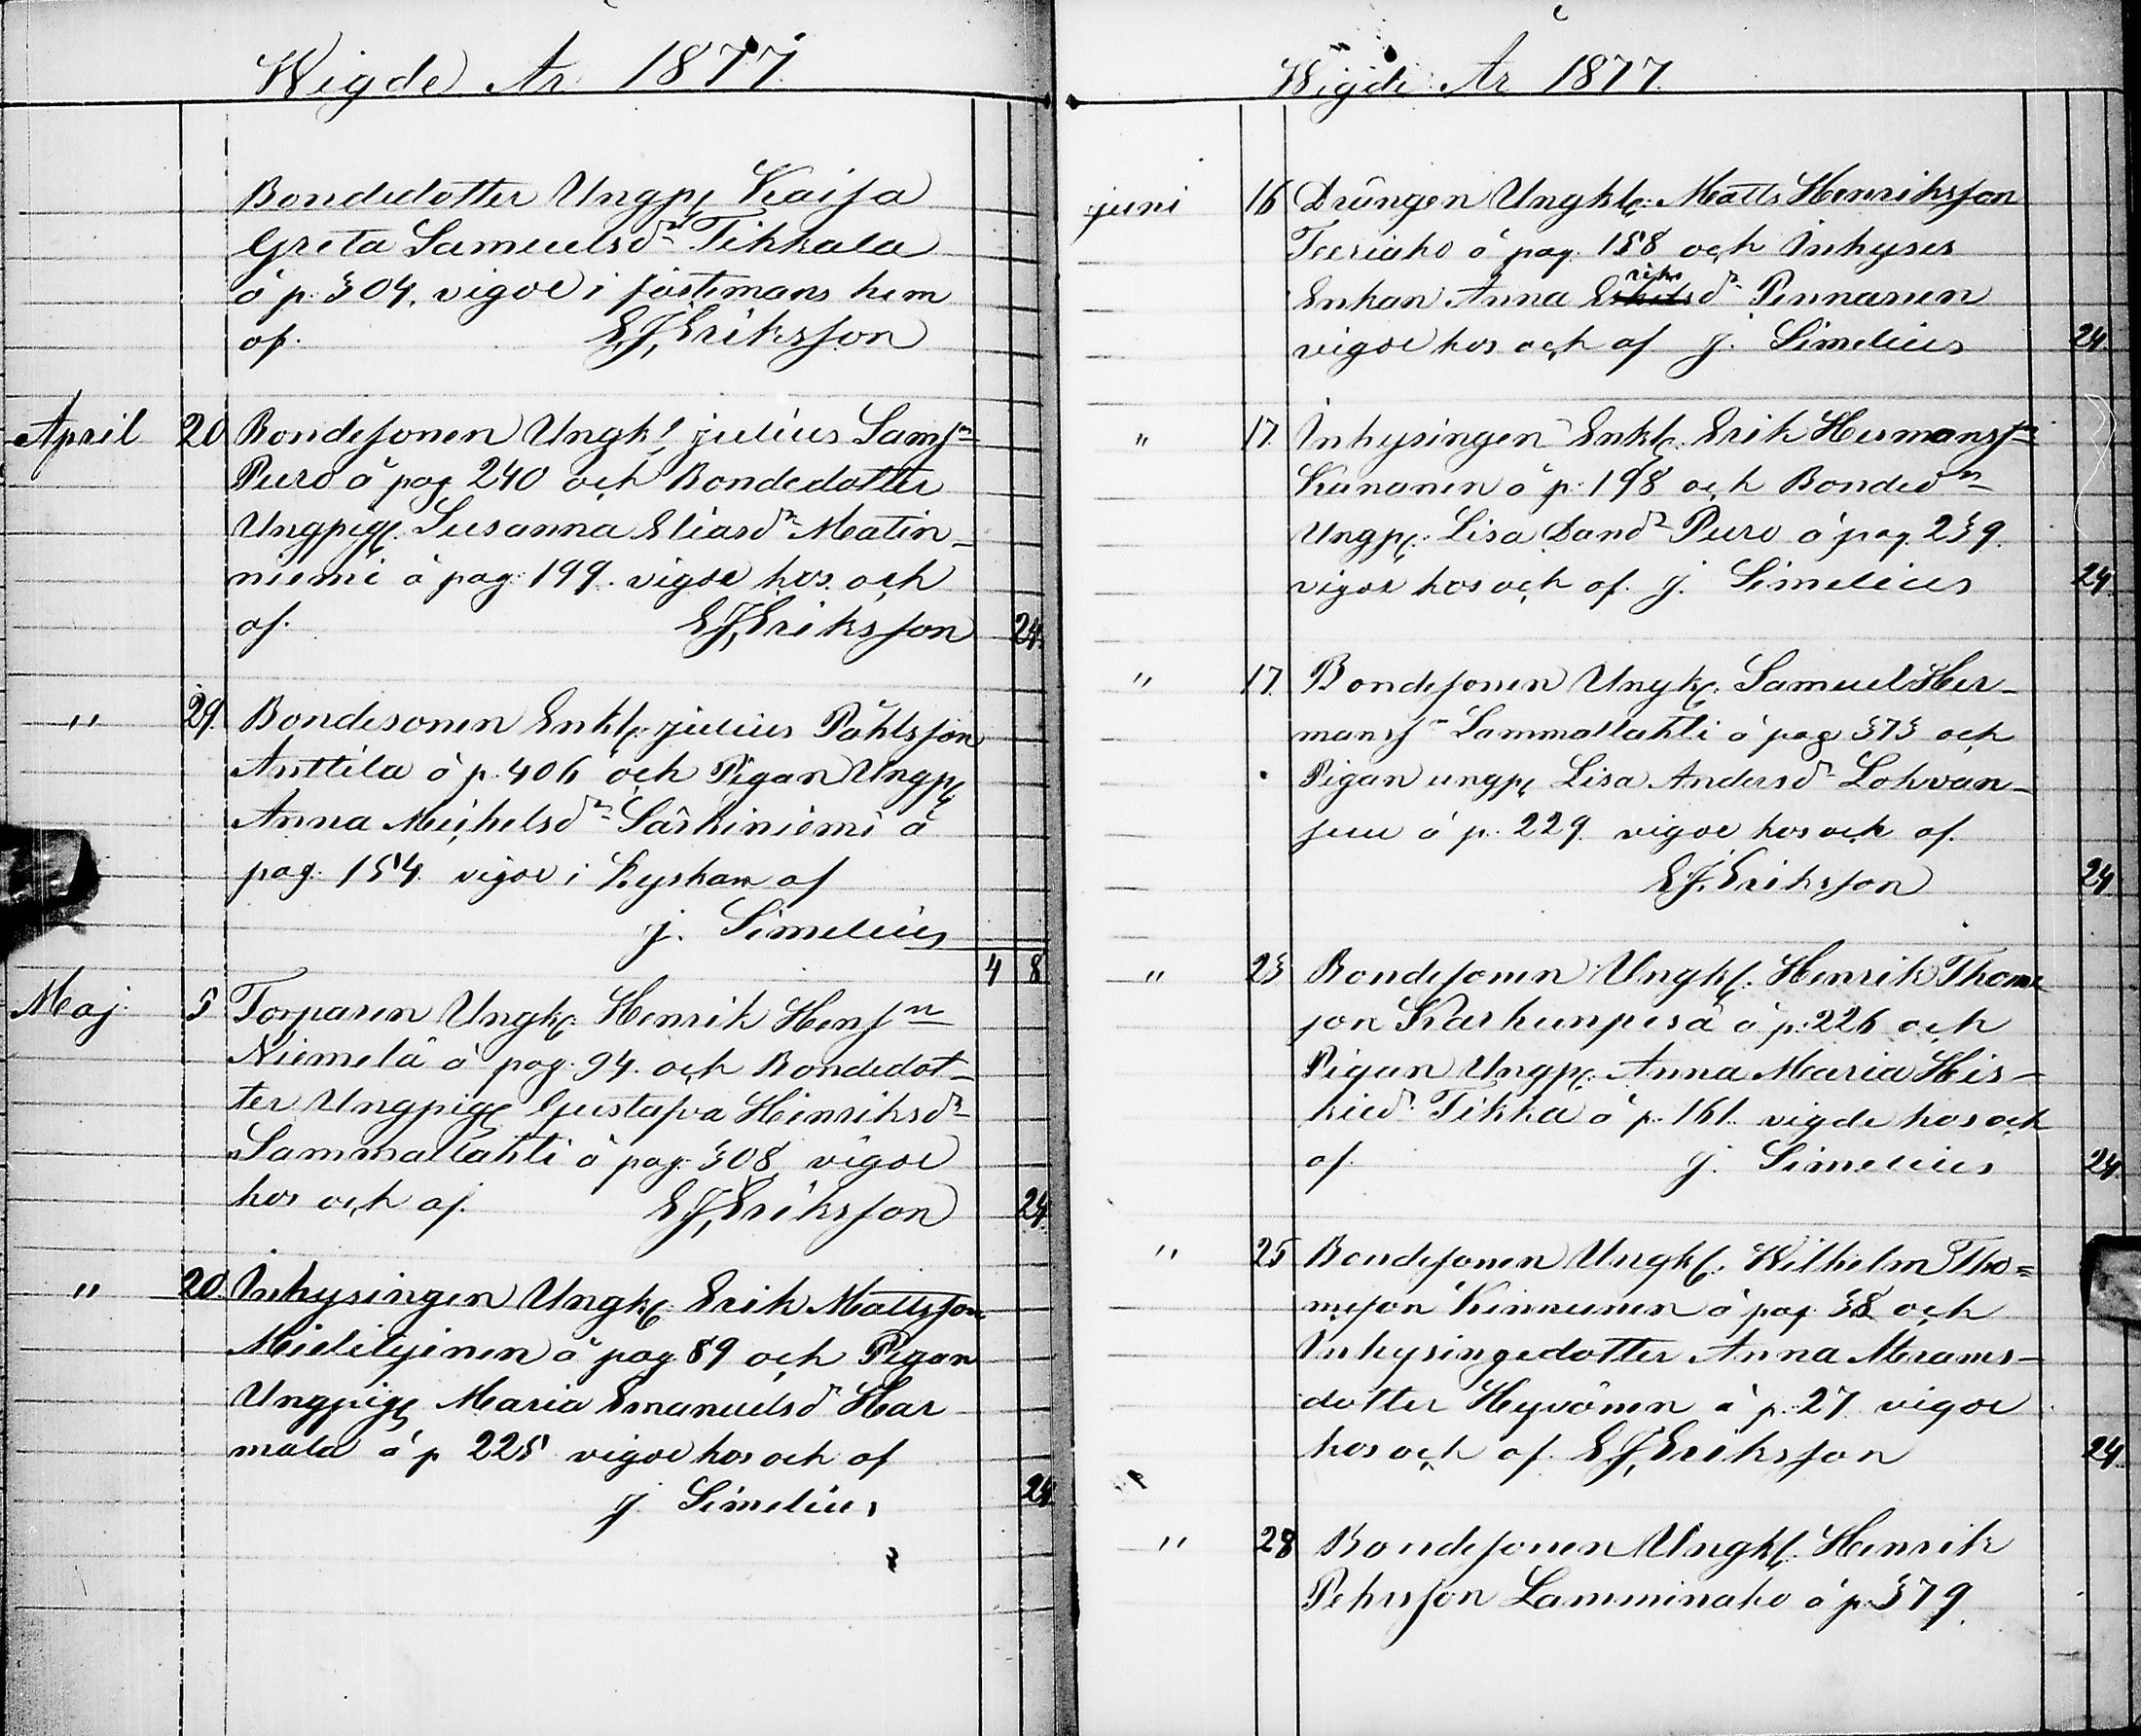 Wigde År 1877.
Bondedotter Ungp. Kaisa
Greta Samuelsdr Tikkala
å p. 304. vigde i fästemans hem
af. E.J. Eriksson
April 20 Bondesonen Ungk. Julius Samsn
Puro å pag 240 och Bondedotter
Ungpig. Susanna Eliasdr Matin-
niemi å pag: 199. vigde hos och
af. E.J. Eriksson 24.
" 29. Bondesonen Enkl. Julius Påhlsson
Anttila å p. 406 och Pigan Ungp.
Anna Michelsdr Särkiniemi å
pag. 154. vigde i Kyrkan af
J. Simelius
4 8
Maj 5 Torparen Ungk. Henrik Hensn
Niemelä å pag. 94. och Bondedot-
ter Ungpig. Gustafva Henriksdr
Sammallahti å pag. 308, vigde
hos och af. E.J. Eriksson 24.
" 20 Inhysingen Ungk. Erik Mattsson
Mielityinen å pag 89 och Pigan
Ungpig. Maria Emanuelsdr Har
mala å p 225 vigde hos och af
J. Simelius 24
Wigde År 1877.
juni 16 Drängen Ungkl. Matts Henriksson
Teeriaho å pag. 158 och Inhyses
Enkan Anna Eriksdr Pennanen
vigde hos och af J. Simelius 24
" 17. Inhysingen Enkl. Erik Hermanssn
Kananen å p. 198 och Bondedn
Ungp. Lisa Dandr Puro å pag. 239.
vigde hos och af. J. Simelius 24.
" 17. Bondesonen Ungk. Samuel Her-
manssn Sammallahti å pag 373 och
Pigan ungp. Lisa Andersdr Lohvan-
suu å p. 229. vigde hos och af.
E.J. Eriksson 24.
" 23 Bondesonen Ungk. Henrik Thome
son Karhunpesä å p. 226 och
Pigan Ungp. Anna Maria His-
kiedr Tikka å p. 161. vigde hos och
af. J. Simelius 24.
" 25 Bondesonen Ungk. Wilhelm Tho=
meson Kinnunen å pag 38 och
Inhysingedotter Anna Abrams-
dotter Hyvönen å p. 27 vigde
hos och af. E.J. Eriksson 24.
" 28 Bondesonen Ungk. Henrik
Pehrsson Lamminaho å p. 379.